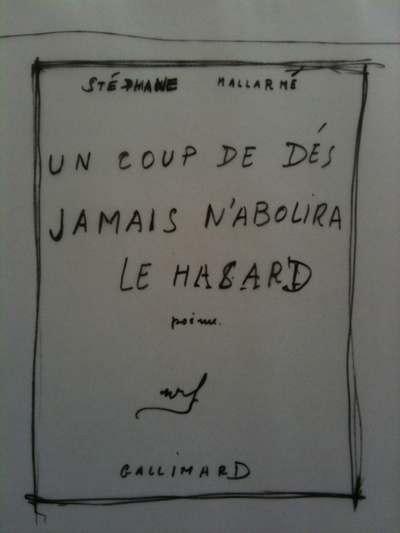 STÉPHANE MALLARMÉ
UN COUP DE DÉS
JAMAIS N'ABOLIRA
LE HASARD
poème.
nrf
GALLIMARD